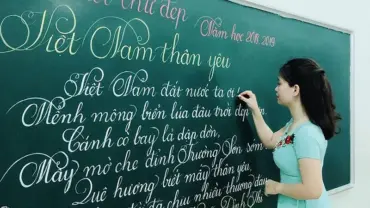 viết chữ đẹp
Năm học 2018 2019
Việt Nam thân yêu
Việt Nam đất nước ta ơi
Mênh mông biển lúa đâu trời đẹp
Cánh cò bay lả dập dờn,
Mây mờ che đỉnh Trường Sơn sớm
Quê hương biết mấy thân yêu,
đã chịu nhiều thương đau